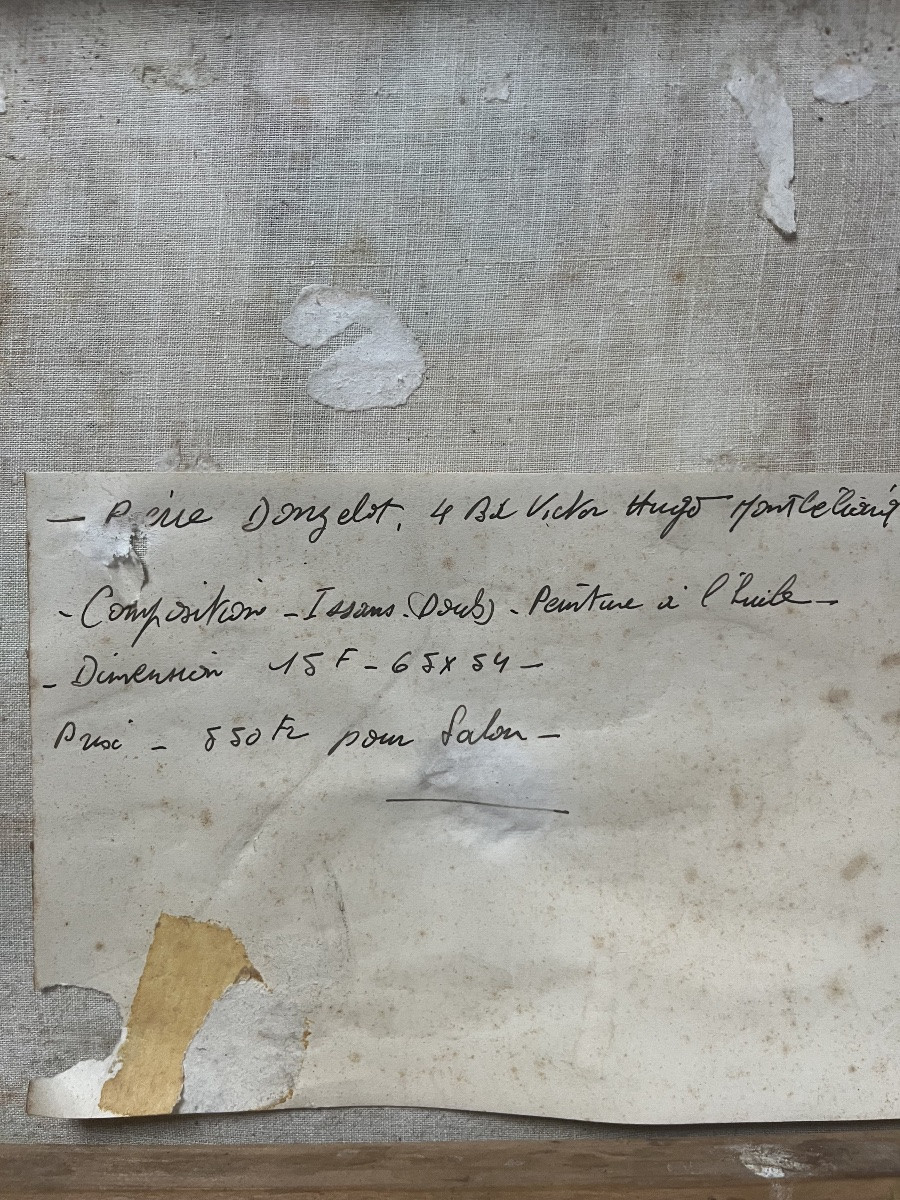 — Pierre Donzelot, 4 Bd Victor Hugo
- Composition - Issans. (Doubs) - Peinture à l'huile -
- Dimension 15 F - 65 x 54 -
Prix - 550 Fr pour Salon -